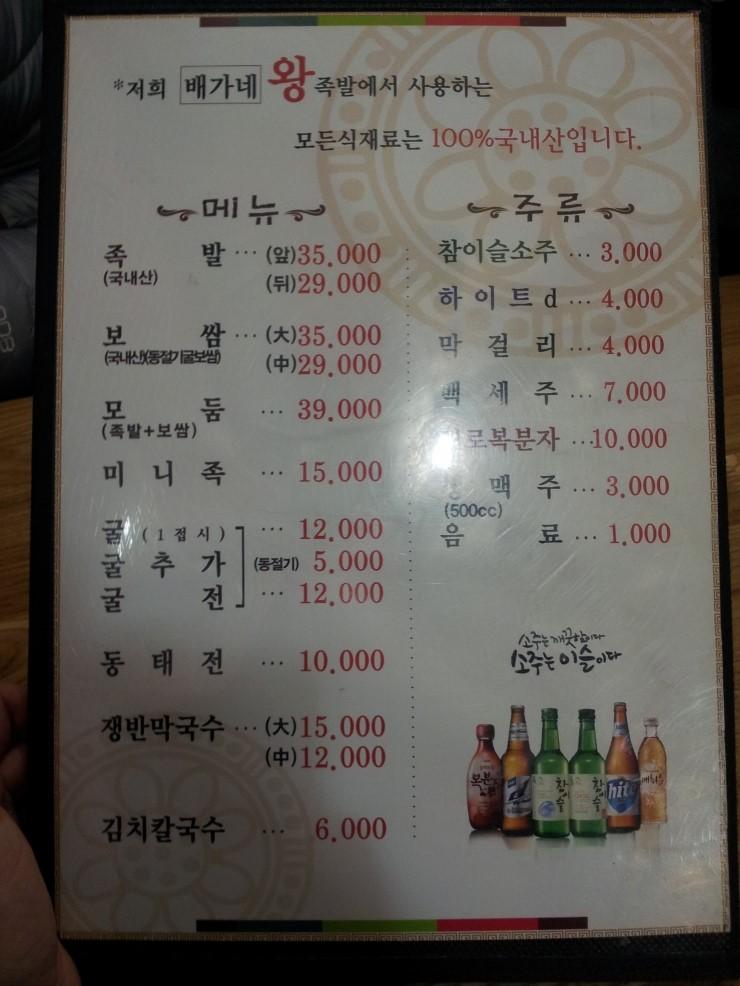 *저희 배가네 왕족발에서 사용하는
모든식재료는 100%국내산입니다.
메뉴
족 발 ··· (앞)35.000
(국내산) (뒤)29.000
보 쌈 ··· (大)35.000
(국내산)(동절기굴보쌈) (中)29.000
모 둠 ··· 39.000
(족발+보쌈)
미 니 족 ··· 15.000
굴 (1접시) ··· 12.000
굴 추 가 (동절기) 5.000
굴 전 ··· 12.000
동 태 전 ··· 10.000
쟁반막국수 ··· (大)15.000
(中)12.000
김치칼국수 ··· 6.000
주류
참이슬소주 ··· 3.000
하 이 트 d ··· 4.000
막 걸 리 ··· 4.000
백 세 주 ··· 7.000
로복분자 ···10.000
맥 주 ··· 3.000
(500cc)
음 료 ··· 1.000
소주는 깨끗함이다
소주는 이슬이다
복분자
참이슬
참이슬
hite